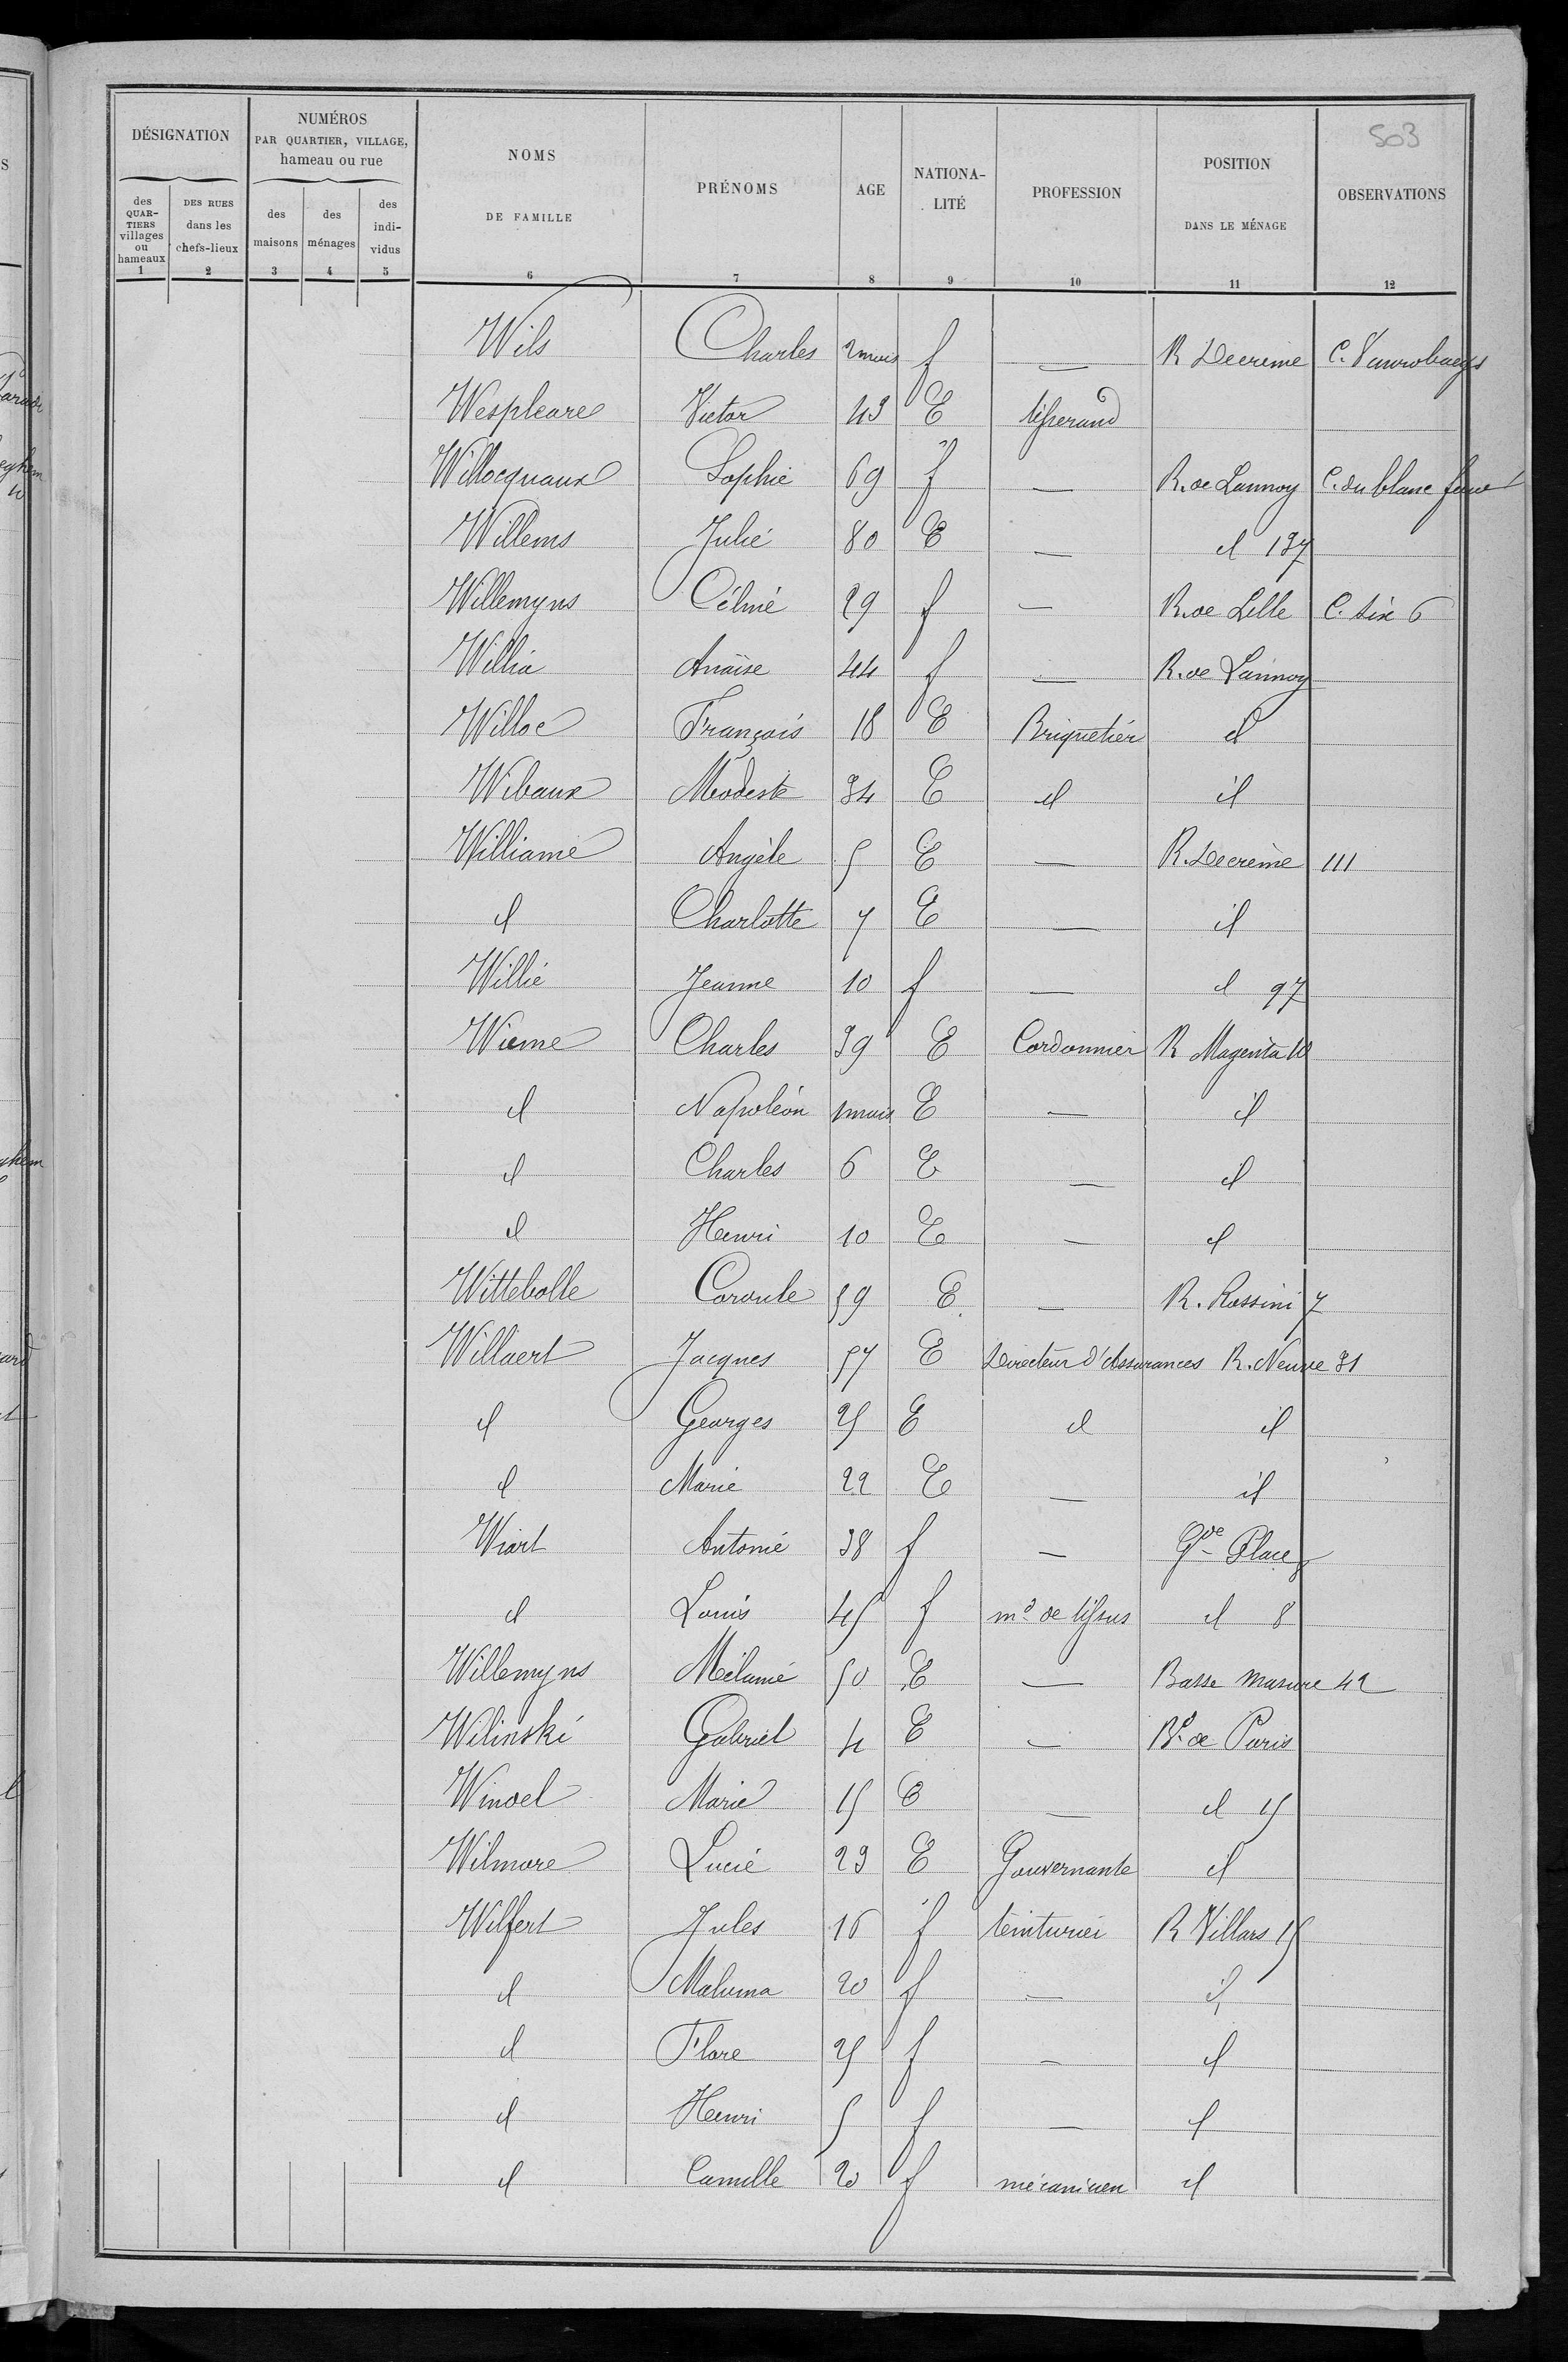 503
DÉSIGNATION
NUMÉROS
PAR QUARTIER, VILLAGE,
hameau ou rue
NOMS
DE FAMILLE
PRÉNOMS
AGE
NATIONA-
LITÉ
PROFESSION
POSITION
DANS LE MÉNAGE
OBSERVATIONS
des
QUAR-
TIERS
villages
ou
hameaux
DES RUES
dans les
chefs-lieux
des
maisons
des
ménages
des
indi-
vidus
1 2 3 4 5 6 7 8 9 10 11 12
Wils Charles 2 mois f — R Decrème C.
Wespleare Victor 43 E tisserand
Willocquaux Sophie 69 f — R. de Lannoy C. du blanc four
Willems Julie 80 E — id 137
Willemyns Célinie 29 f — R. de Lille C. Six 6
Willia Anaïse 44 f — R. de Lannoy
Willoc François 18 E Briquetier id
Wibaux Modeste 34 E id id
Williame Angèle 5 E — R. Decrème 111
id Charlotte 7 E — id
Willié Jeanne 10 f — id 97
Wieme Charles 39 E Cordonnier R Magenta 10
id Napoléon 1 mois E — id
id Charles 6 E — id
id Henri 10 E — id
Wittebolle Coroule 59 E — R. Rossini 7
Willaert Jacques 57 E Directeur d'Assurances R. Neuve 31
id Georges 25 E id id
id Marie 22 E — id
Wiart Antonie 38 f — Gde Place
id Louis 45 f md de tissus id 8
Willemyns Mélanie 50 E — Basse Masure 42
Wilinski Gabriel 4 E — Bd de Paris
Winoel Marie 15 E — id 15
Wilmore Lucie 23 E Gouvernante id
Wilfert Jules 16 f teinturier R Villars 15
id Maluma 20 f — id
id Flore 25 f — id
id Henri 5 f — id
id Camille 20 f mécanicien id